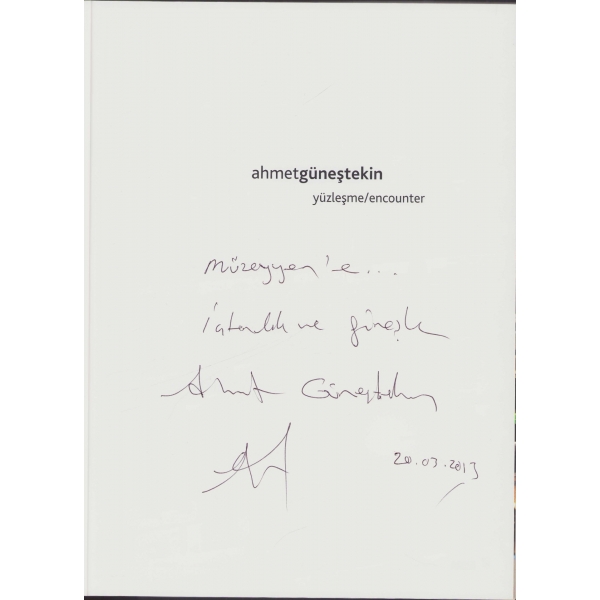 ahmetgüneştekin
yüzleşme/encounter
müzeyyen'e...
içtenlik ve güneşle
Ahmet Güneştekin
20.03.2013